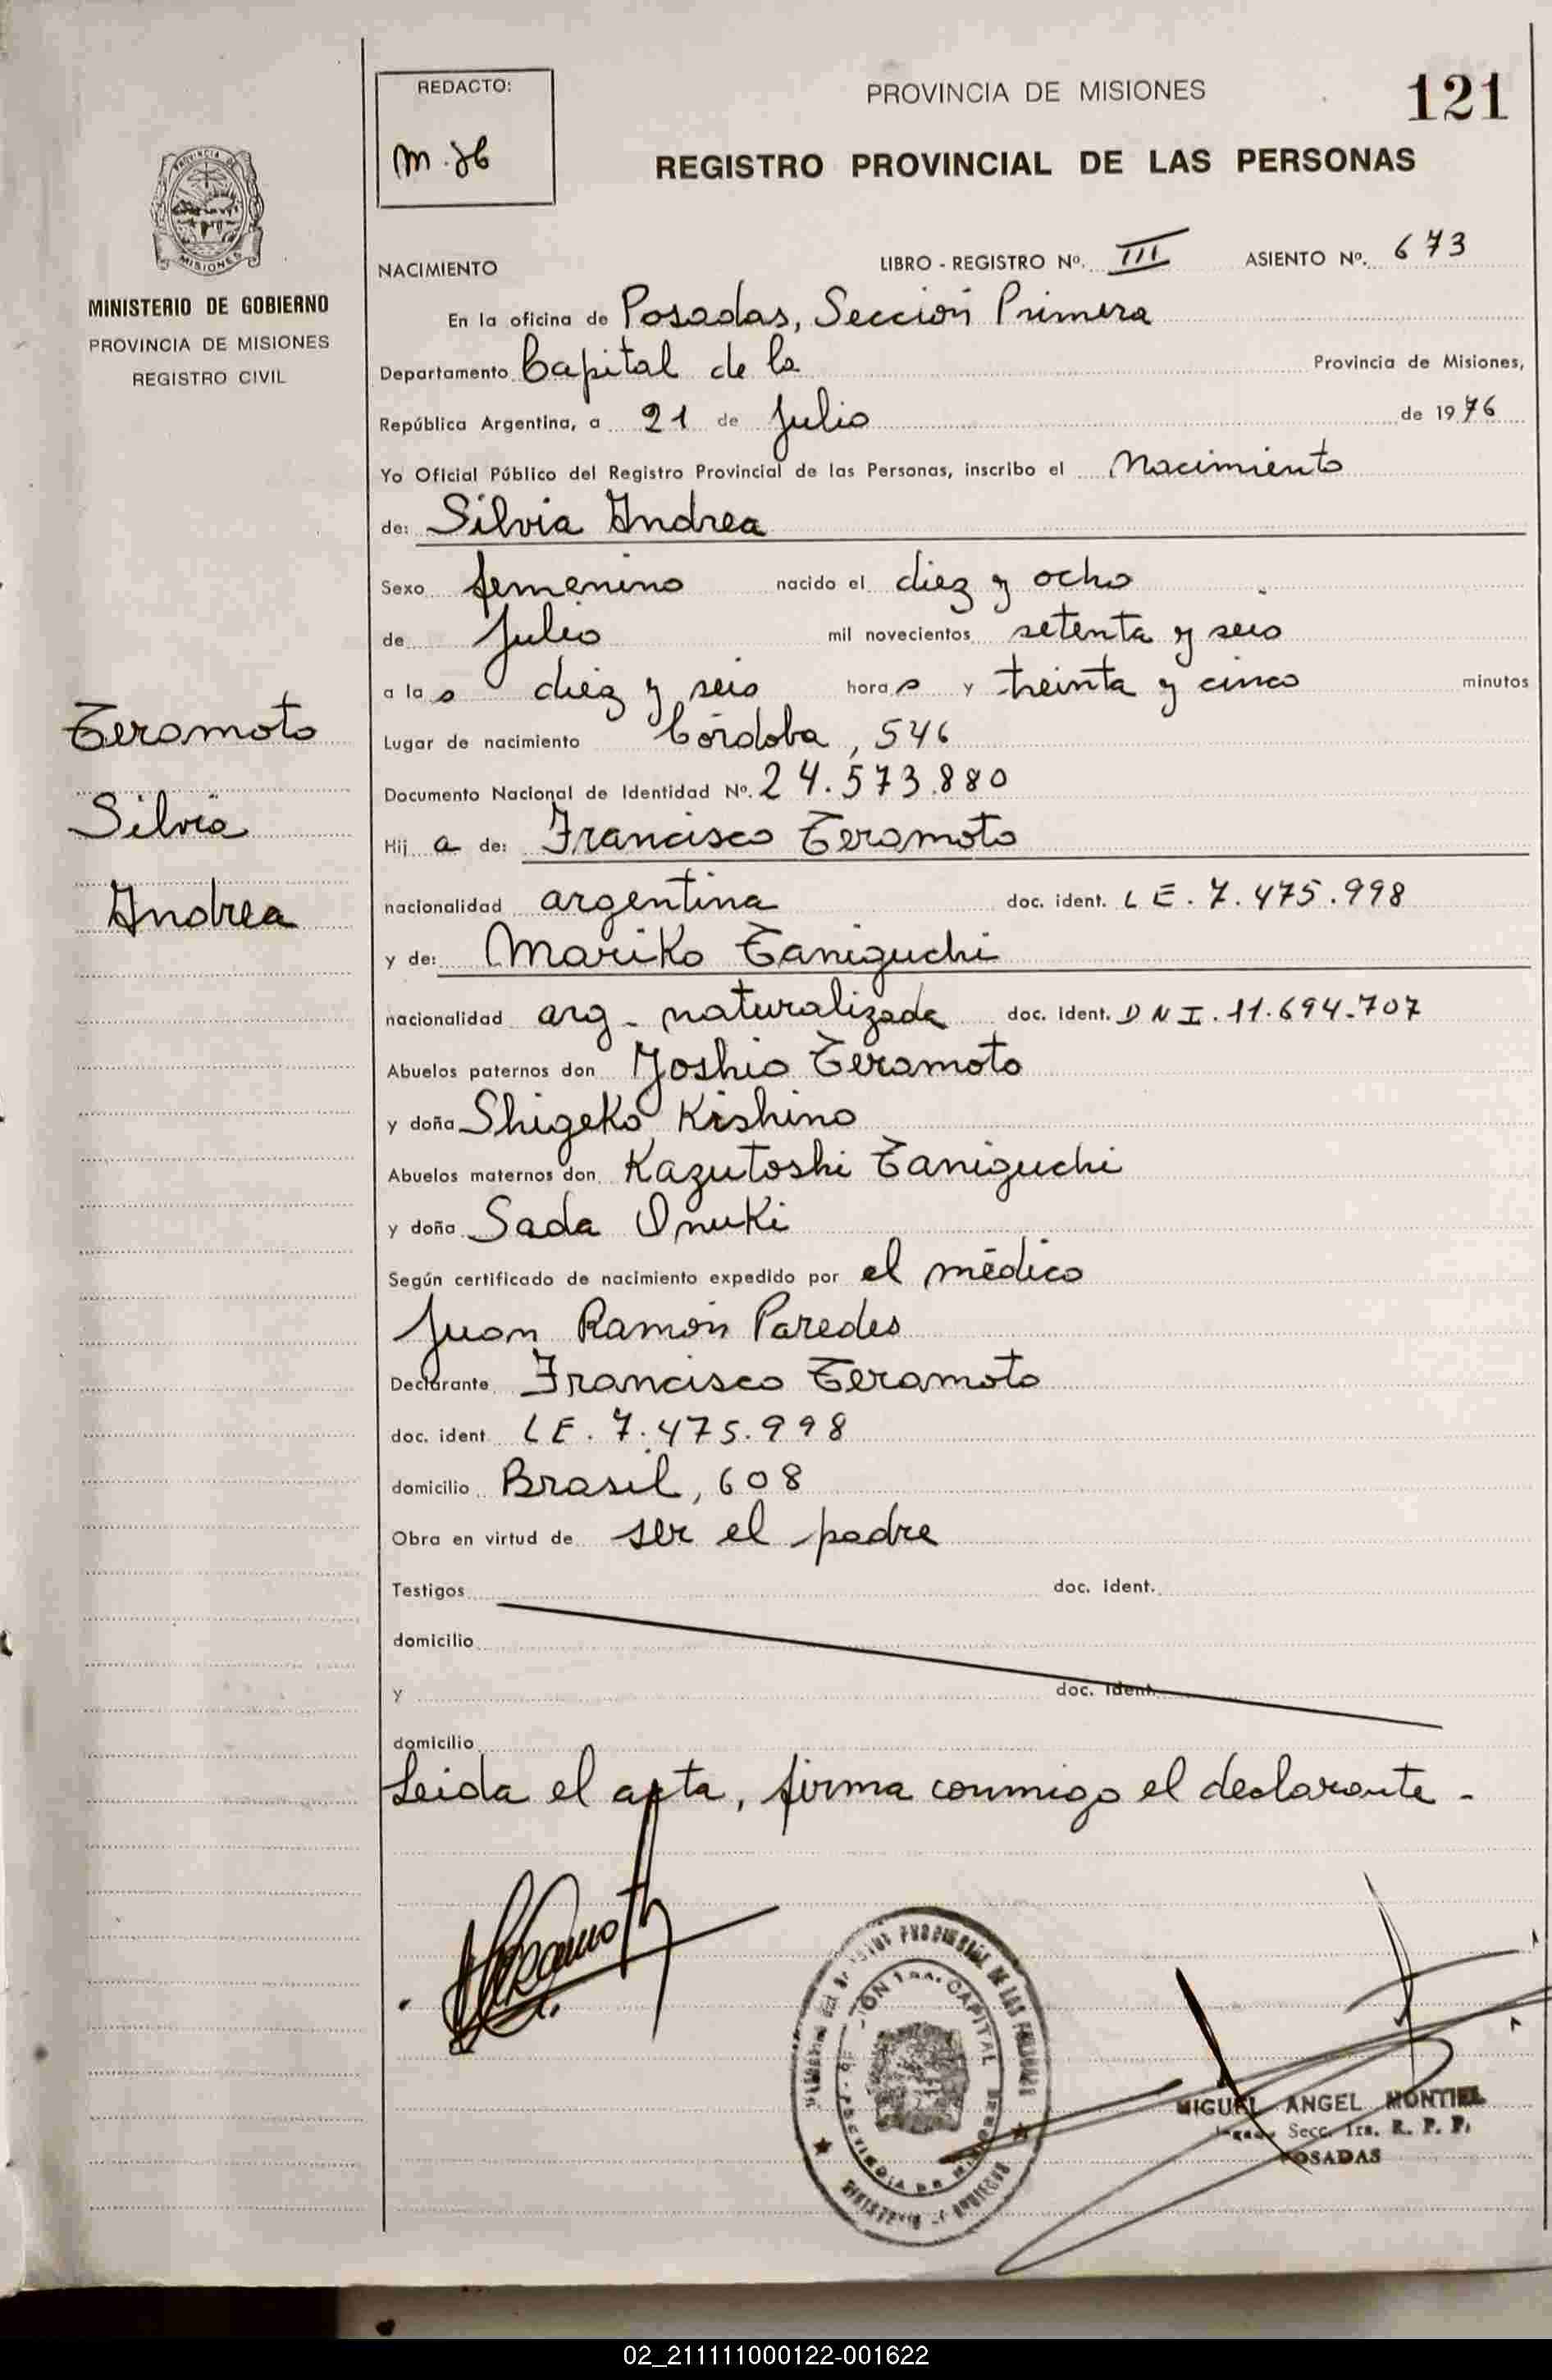 REDACTO:
PROVINCIA DE MISIONES
121
REGISTRO PROVINCIAL DE LAS PERSONAS
MISIONES
MINISTERIO DE GOBIERNO
PROVINCIA DE MISIONES
REGISTRO CIVIL
Teramoto
Silvia
Andrea
NACIMIENTO LIBRO - REGISTRO Nº. III ASIENTO Nº. 673
En la oficina de Posadas, Sección Primera
Departamento Capital de la Provincia de Misiones,
República Argentina, a 21 de Julio de 1976
Yo Oficial Público del Registro Provincial de las Personas, inscribo el Nacimiento
de: Silvia Andrea
Sexo femenino nacido el diez y ocho
de Julio mil novecientos setenta y seis
a la s diez y seis hora s y treinta y cinco minutos
Lugar de nacimiento Córdoba, 546
Documento Nacional de Identidad Nº. 24.573.880
Hij a de: Francisco Teramoto
nacionalidad argentina doc. ident. L E. 7.475.998
y de: Mariko Taniguchi
nacionalidad arg - naturalizada doc. ident. D N I. 11.694.707
Abuelos paternos don Yoshio Teramoto
y doña Shigeko Kishino
Abuelos maternos don Kazutoshi Taniguchi
y doña Sada Onuki
Según certificado de nacimiento expedido por el médico
Juan Ramón Paredes
Declarante Francisco Teramoto
doc. ident. L E. 7.475.998
domicilio Brasil, 608
Obra en virtud de ser el padre
Testigos doc. ident.
domicilio
y doc. ident.
domicilio
Leida el acta, firma conmigo el declarante -
MIGUEL ANGEL MONTIEL
Secc. 1ra. R. P. P.
POSADAS
02_211111000122-001622